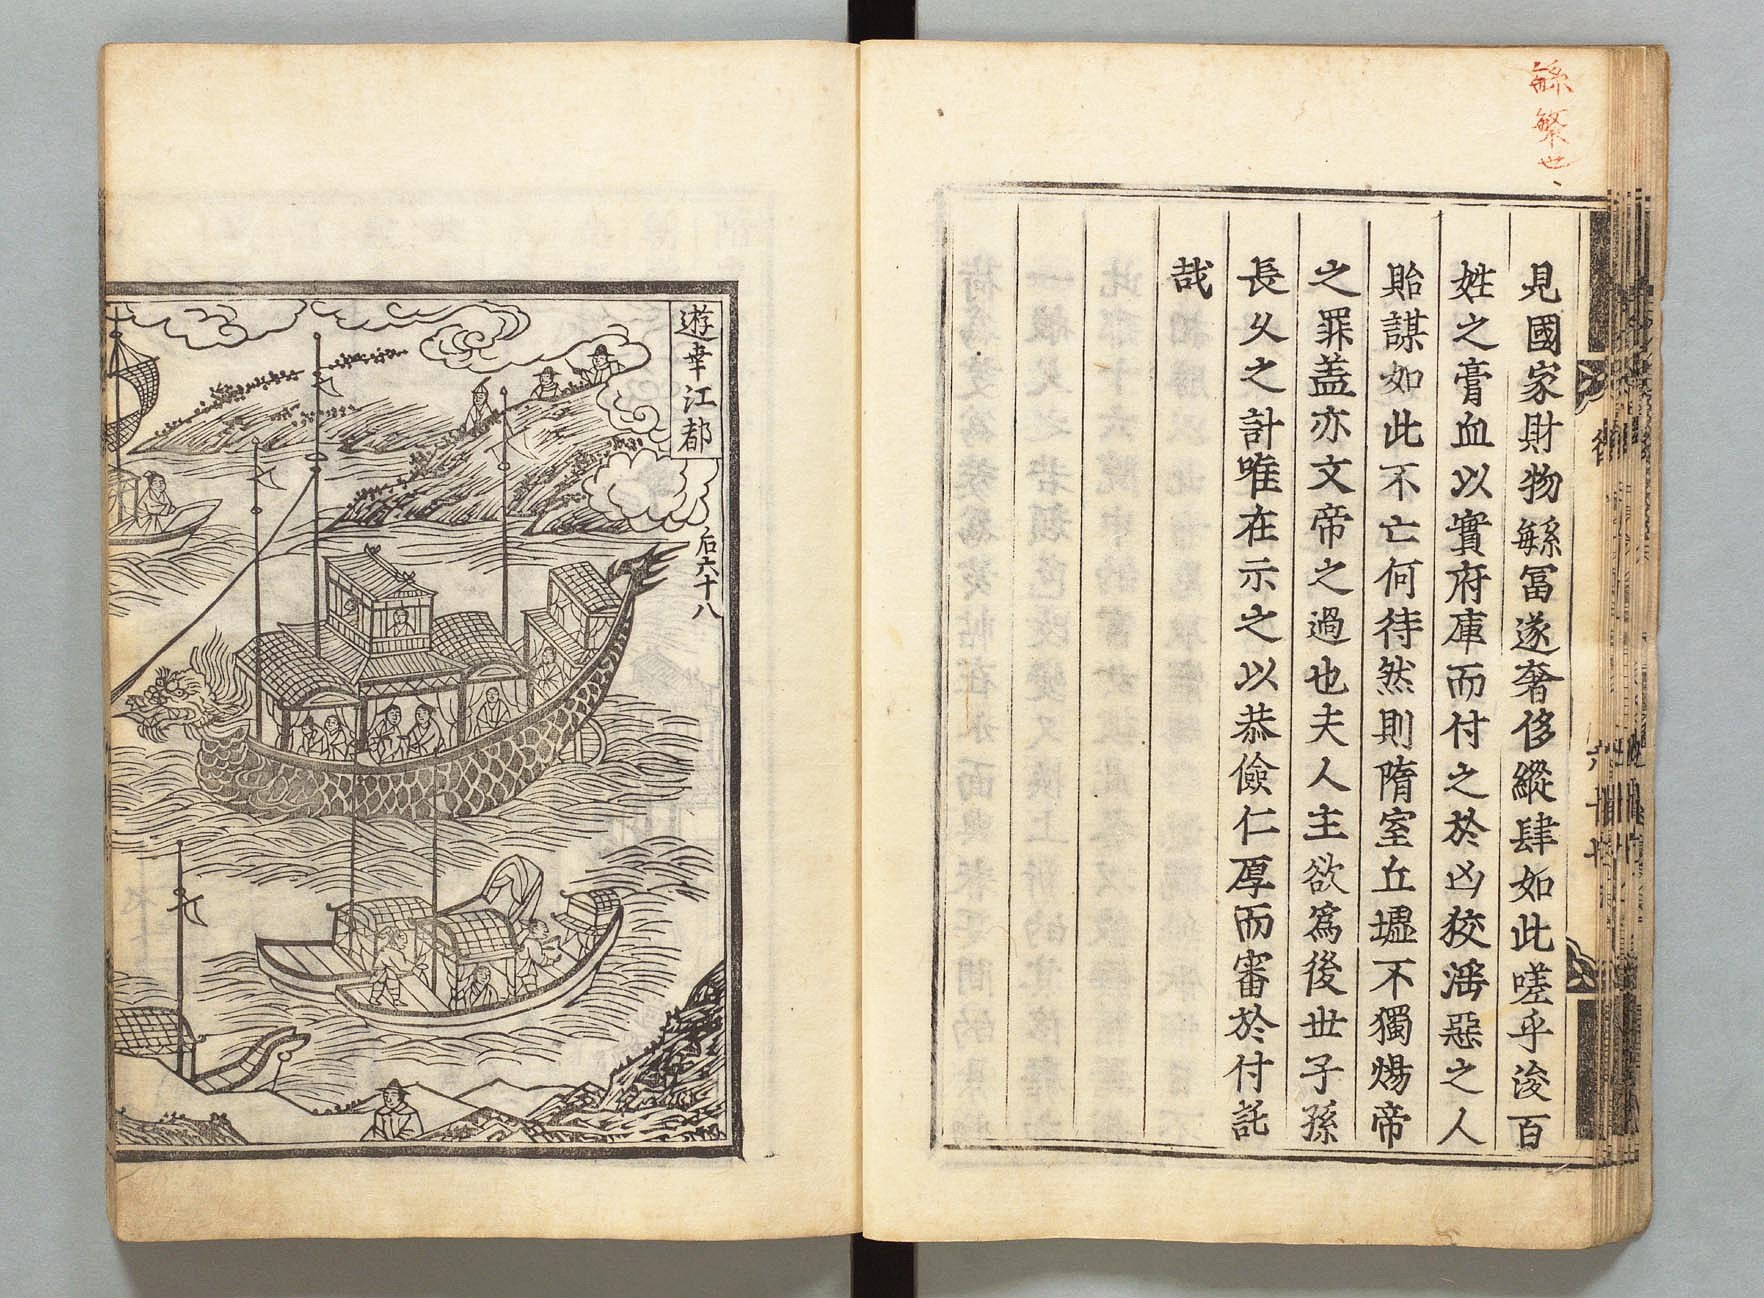 緐繁也
見國家財物緐冨遂奢侈縱肆如此嗟乎浚百
姓之膏血以實府庫而付之於凶狡滛惡之人
貽謀如此不亡何待然則隋室丘墟不獨煬帝
之罪盖亦文帝之過也夫人主欲爲後世子孫
長久之計唯在示之以恭儉仁厚而審於付託
哉
遊幸江都
后六十八